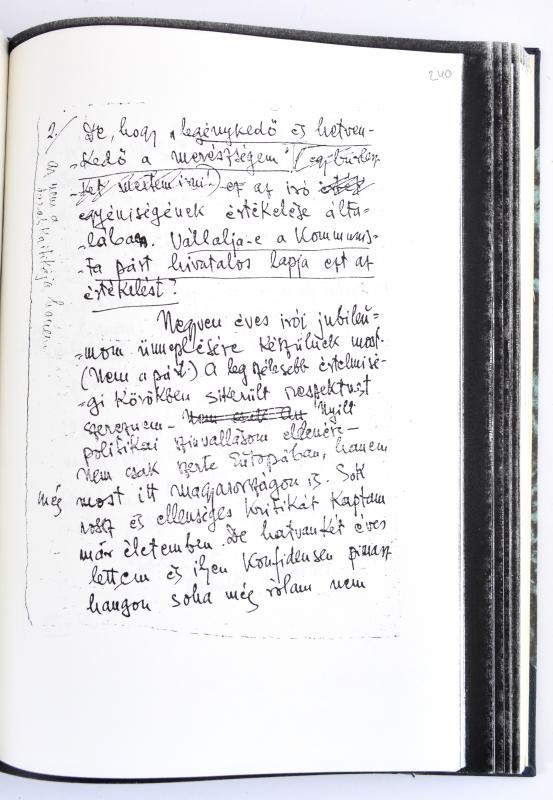 240
2. De, hogy „legénykedő és hetven-
-kedő a merészségem" (egy
mertem irni!) ez az iró
egyéniségének értékelése álta-
-lában. Vállalja-e a Kommunis-
-ta párt hivatalos lapja ezt az
értékelést?
az nem a
hanem
Negyven éves irói jubileu-
-mom ünneplésére készülnek most.
(Nem a párt.) A legszélesebb értelmisé-
-gi körökben sikerült respektust
szereznem – Nem csak Nyilt
politikai szinvallásom ellenére –
nem csak szerte Európában, hanem
még most itt magyarországon is. Sok
rossz és ellenséges kritikát kaptam
már életemben. De hatvankét éves
lettem és ilyen konfidensen pimasz
hangon soha még rólam nem